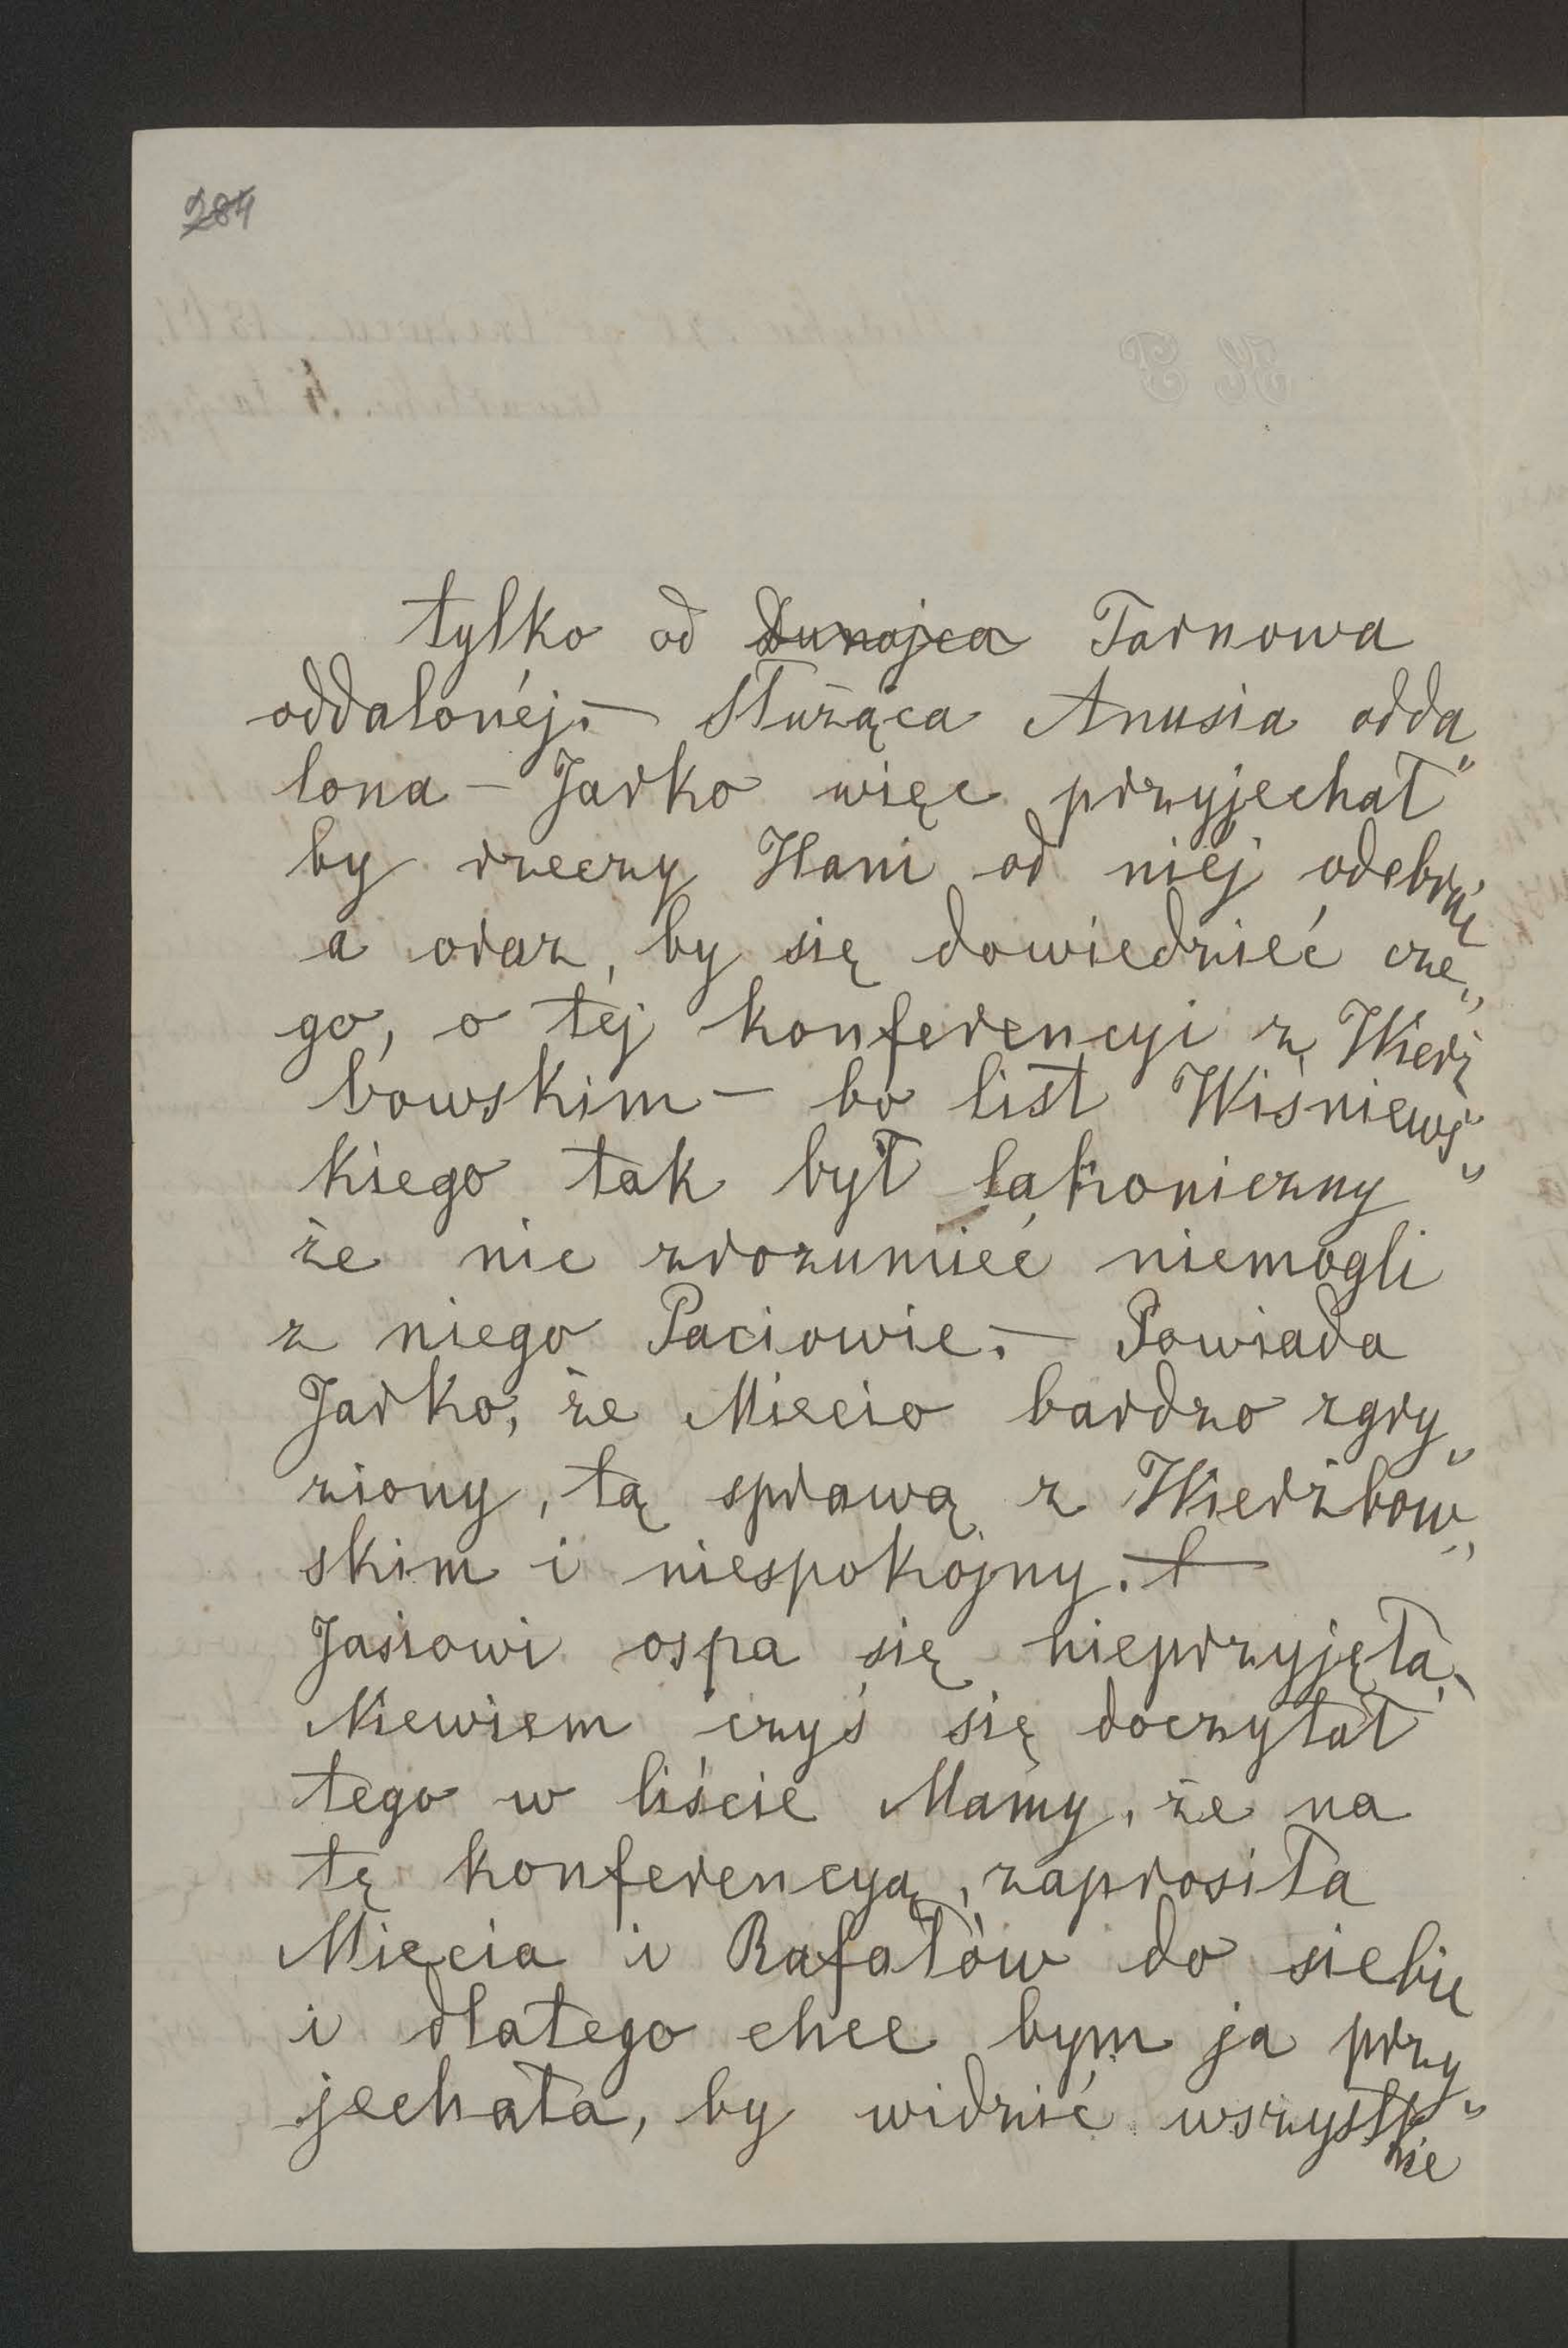 284
tylko od Dunajca Tarnowa
oddalonéj. — Służąca Anusia odda„
lona — Jarko więc przyjechał
by rzeczy Hani od niéj odebrać
a oraz, by się dowiedzieć cze„
go, o téj konferencyi z Wierz
bowskim — bo list Wiśniews„
kiego tak był lakoniczny
że nic zrozumieć niemógli
z niego Paciowie. — Powiada
Jarko, że Miecio bardzo zgry„
ziony, tą sprawą z Wierzbow„
skim i niespokójny. —
Jasiowi ospa się nieprzyjęła.
Niewiem czyś się doczytał
tego w liście Mamy, że na
tę konferencyą, zaprosiła
Miecia i Rafałów do siebie
i dlatego chce bym ja przy„
jechała, by widzić wszystkie